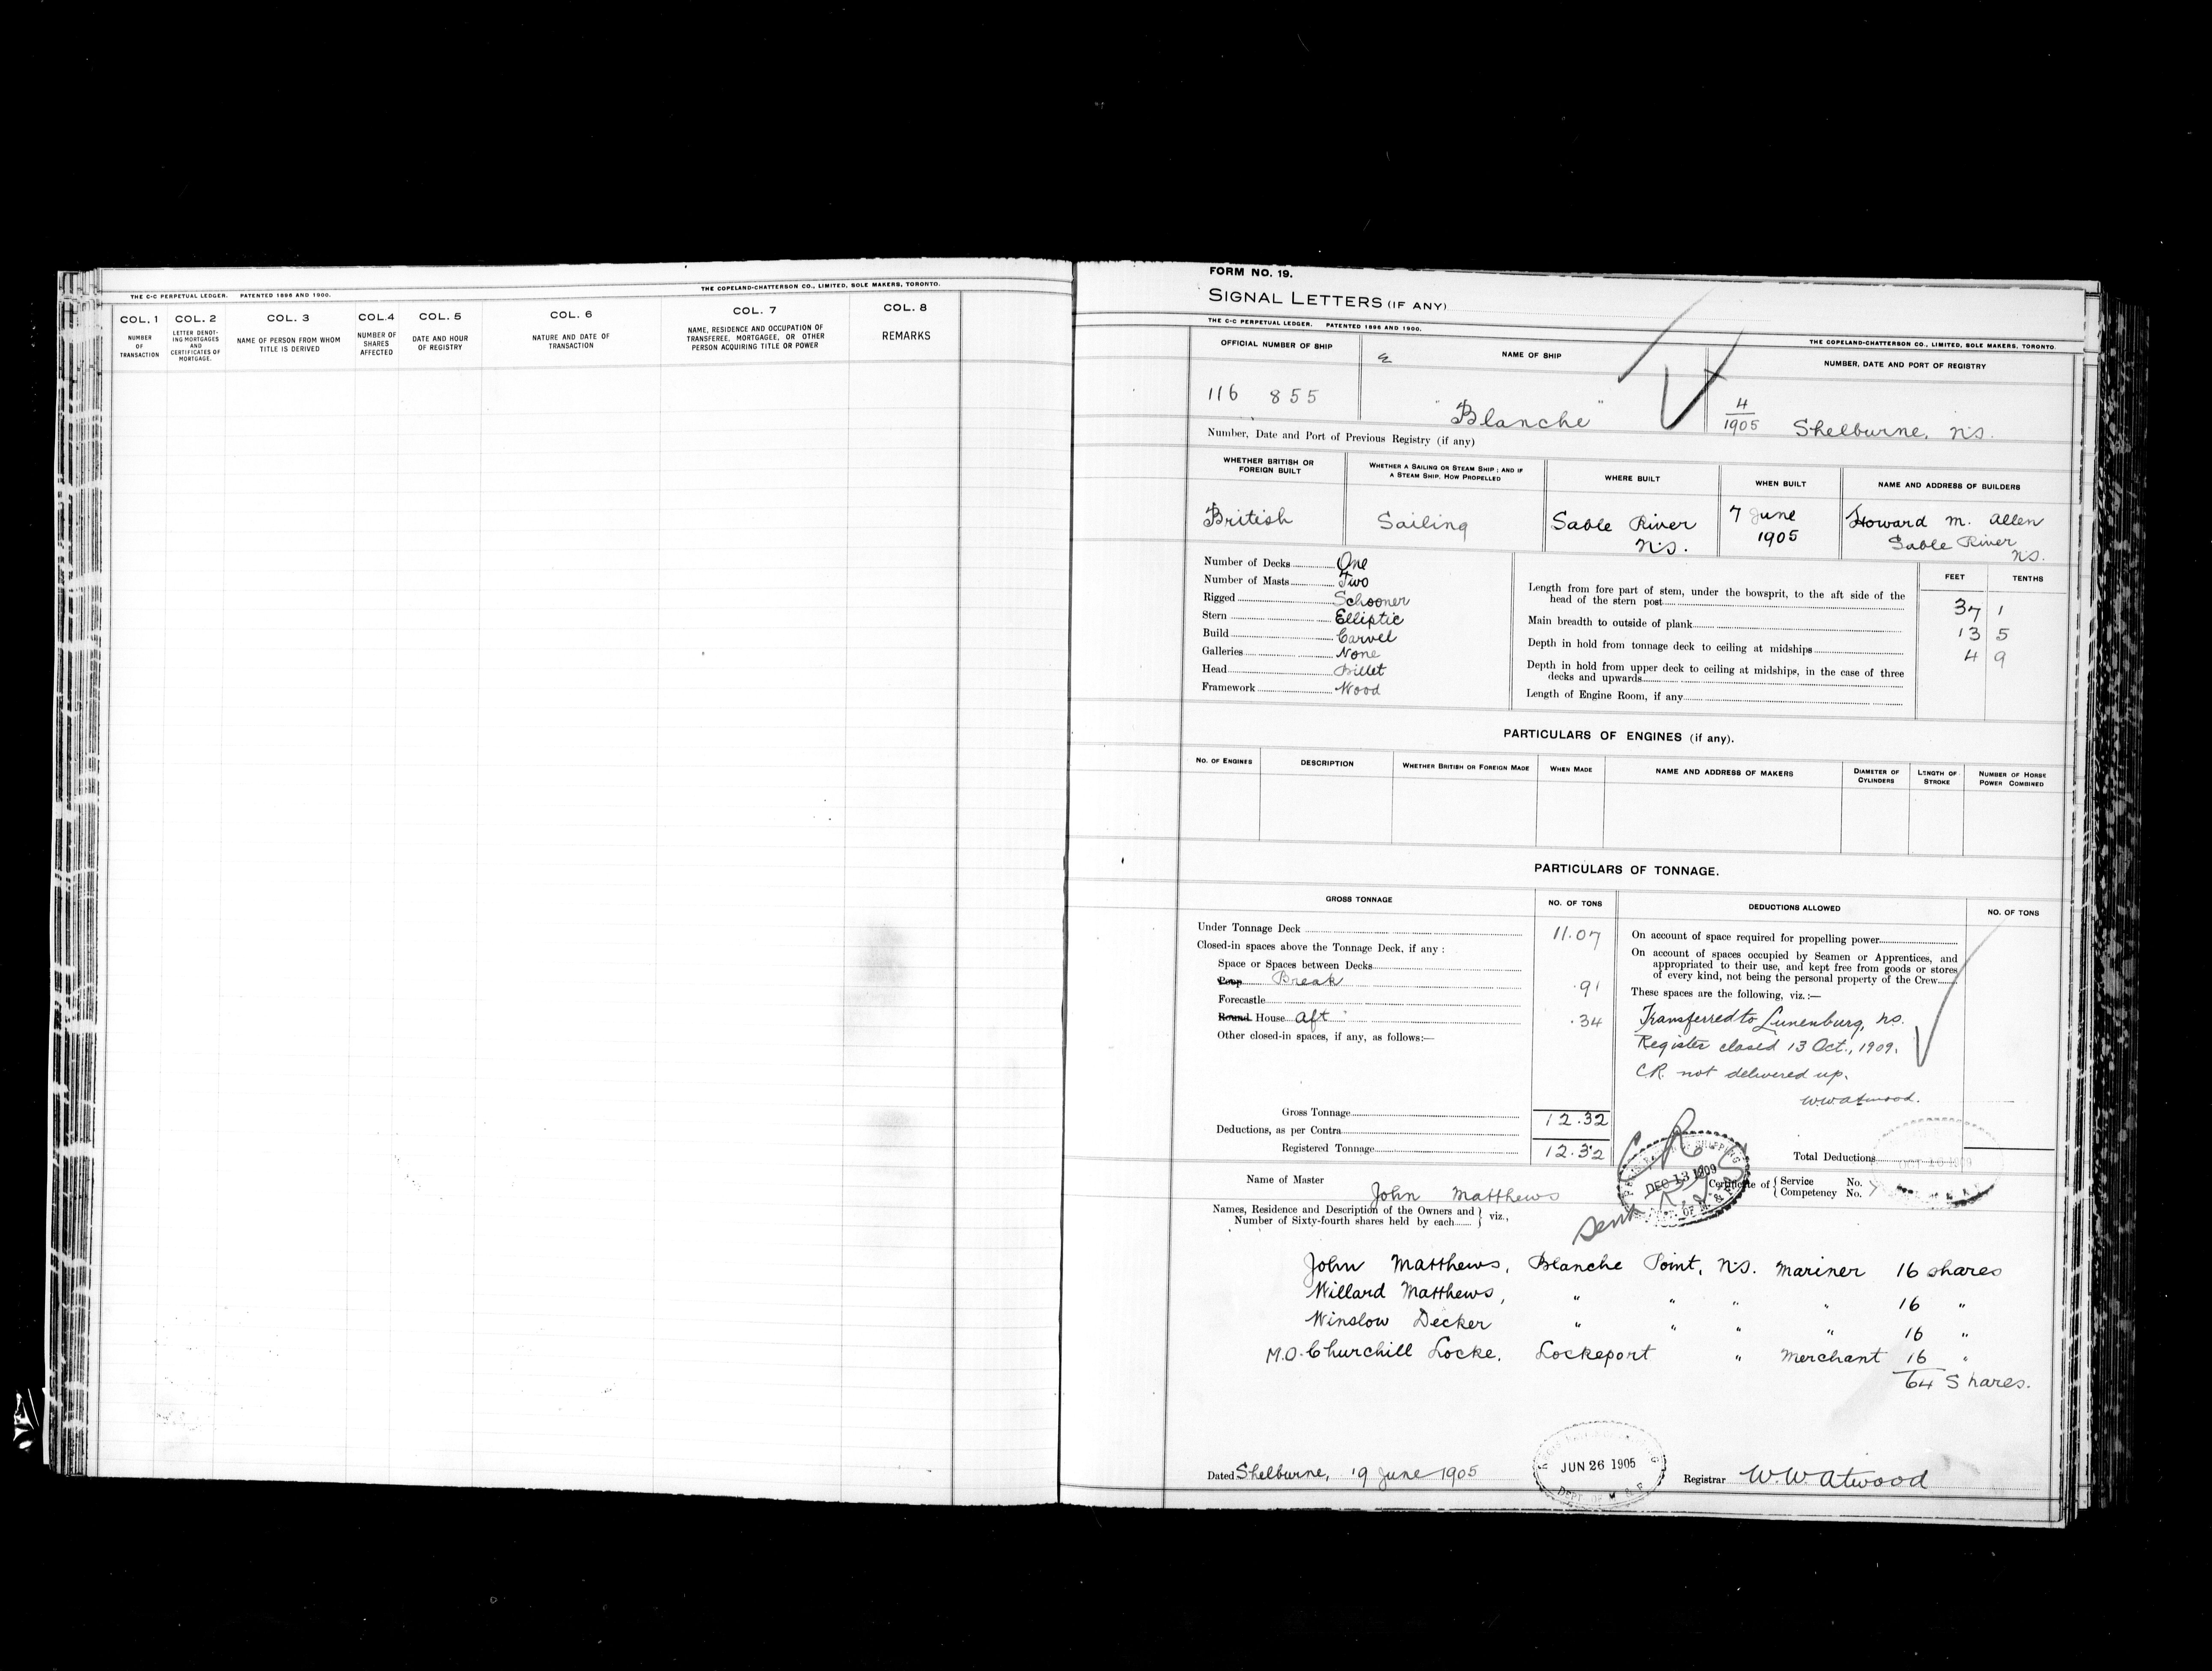 THE C-C PERPETUAL LEDGER. PATENTED 1896 AND 1900. THE COPELAND-CHATTERSON CO., LIMITED, SOLE MAKERS, TORONTO.
COL. 1 COL. 2 COL. 3 COL. 4 COL. 5 COL. 6 COL. 7 COL. 8
NUMBER OF TRANSACTION
LETTER DENOTING MORTGAGES AND CERTIFICATES OF MORTGAGE.
NAME OF PERSON FROM WHOM TITLE IS DERIVED
NUMBER OF SHARES AFFECTED
DATE AND HOUR OF REGISTRY
NATURE AND DATE OF TRANSACTION
NAME, RESIDENCE AND OCCUPATION OF TRANSFEREE, MORTGAGEE, OR OTHER PERSON ACQUIRING TITLE OR POWER
REMARKS
FORM NO. 19.
SIGNAL LETTERS (IF ANY)
THE C-C PERPETUAL LEDGER. PATENTED 1896 AND 1900. THE COPELAND-CHATTERSON CO., LIMITED, SOLE MAKERS, TORONTO.
OFFICIAL NUMBER OF SHIP NAME OF SHIP NUMBER, DATE AND PORT OF REGISTRY
116 855 "Blanche" 4/1905 Shelburne, N.S.
Number, Date and Port of Previous Registry (if any)
WHETHER BRITISH OR FOREIGN BUILT
WHETHER A SAILING OR STEAM SHIP; AND IF A STEAM SHIP, HOW PROPELLED
WHERE BUILT WHEN BUILT NAME AND ADDRESS OF BUILDERS
British Sailing Sable River 7 June Howard M. Allen
N.S. 1905 Sable River
N.S.
Number of Decks One
Number of Masts Two
Rigged Schooner
Stern Elliptic
Build Carvel
Galleries None
Head Billet
Framework Wood
FEET TENTHS
Length from fore part of stem, under the bowsprit, to the aft side of the
head of the stern post 37 1
Main breadth to outside of plank 13 5
Depth in hold from tonnage deck to ceiling at midships 4 9
Depth in hold from upper deck to ceiling at midships, in the case of three
decks and upwards
Length of Engine Room, if any
PARTICULARS OF ENGINES (if any).
NO. OF ENGINES DESCRIPTION WHETHER BRITISH OR FOREIGN MADE WHEN MADE NAME AND ADDRESS OF MAKERS DIAMETER OF CYLINDERS LENGTH OF STROKE NUMBER OF HORSE POWER COMBINED
PARTICULARS OF TONNAGE.
GROSS TONNAGE NO. OF TONS
Under Tonnage Deck 11.07
Closed-in spaces above the Tonnage Deck, if any:
Space or Spaces between Decks
Poop Break .91
Forecastle
Round House aft .34
Other closed-in spaces, if any, as follows:—
Gross Tonnage 12.32
Deductions, as per Contra
Registered Tonnage 12.32
DEDUCTIONS ALLOWED NO. OF TONS
On account of space required for propelling power
On account of spaces occupied by Seamen or Apprentices, and
appropriated to their use, and kept free from goods or stores
of every kind, not being the personal property of the Crew
These spaces are the following, viz.:—
Transferred to Lunenburg, N.S.
Register closed 13 Oct., 1909.
C.R. not delivered up.
W.W. Atwood.
Total Deductions
DEC 13 1909
Name of Master John Matthews
Certificate of Service No.
Competency No.
sent
Names, Residence and Description of the Owners and
Number of Sixty-fourth shares held by each viz.,
John Matthews, Blanche Point, N.S. Mariner 16 shares
Willard Matthews, " " " " 16 "
Winslow Decker " " " " 16 "
M.O. Churchill Locke, Lockeport " Merchant 16 "
64 Shares.
Dated Shelburne, 19 June 1905
JUN 26 1905
DEPT. OF M. & F.
Registrar W.W. Atwood